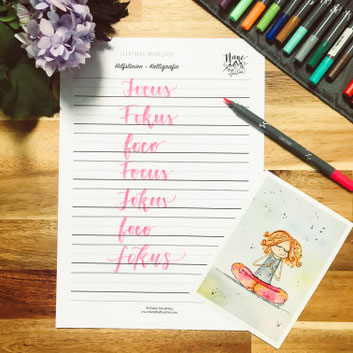 LETTERING WORKSHOP
Hilfslinien - Kalligrafie
Focus
Fokus
foco
Focus
Fokus
foco
fokus